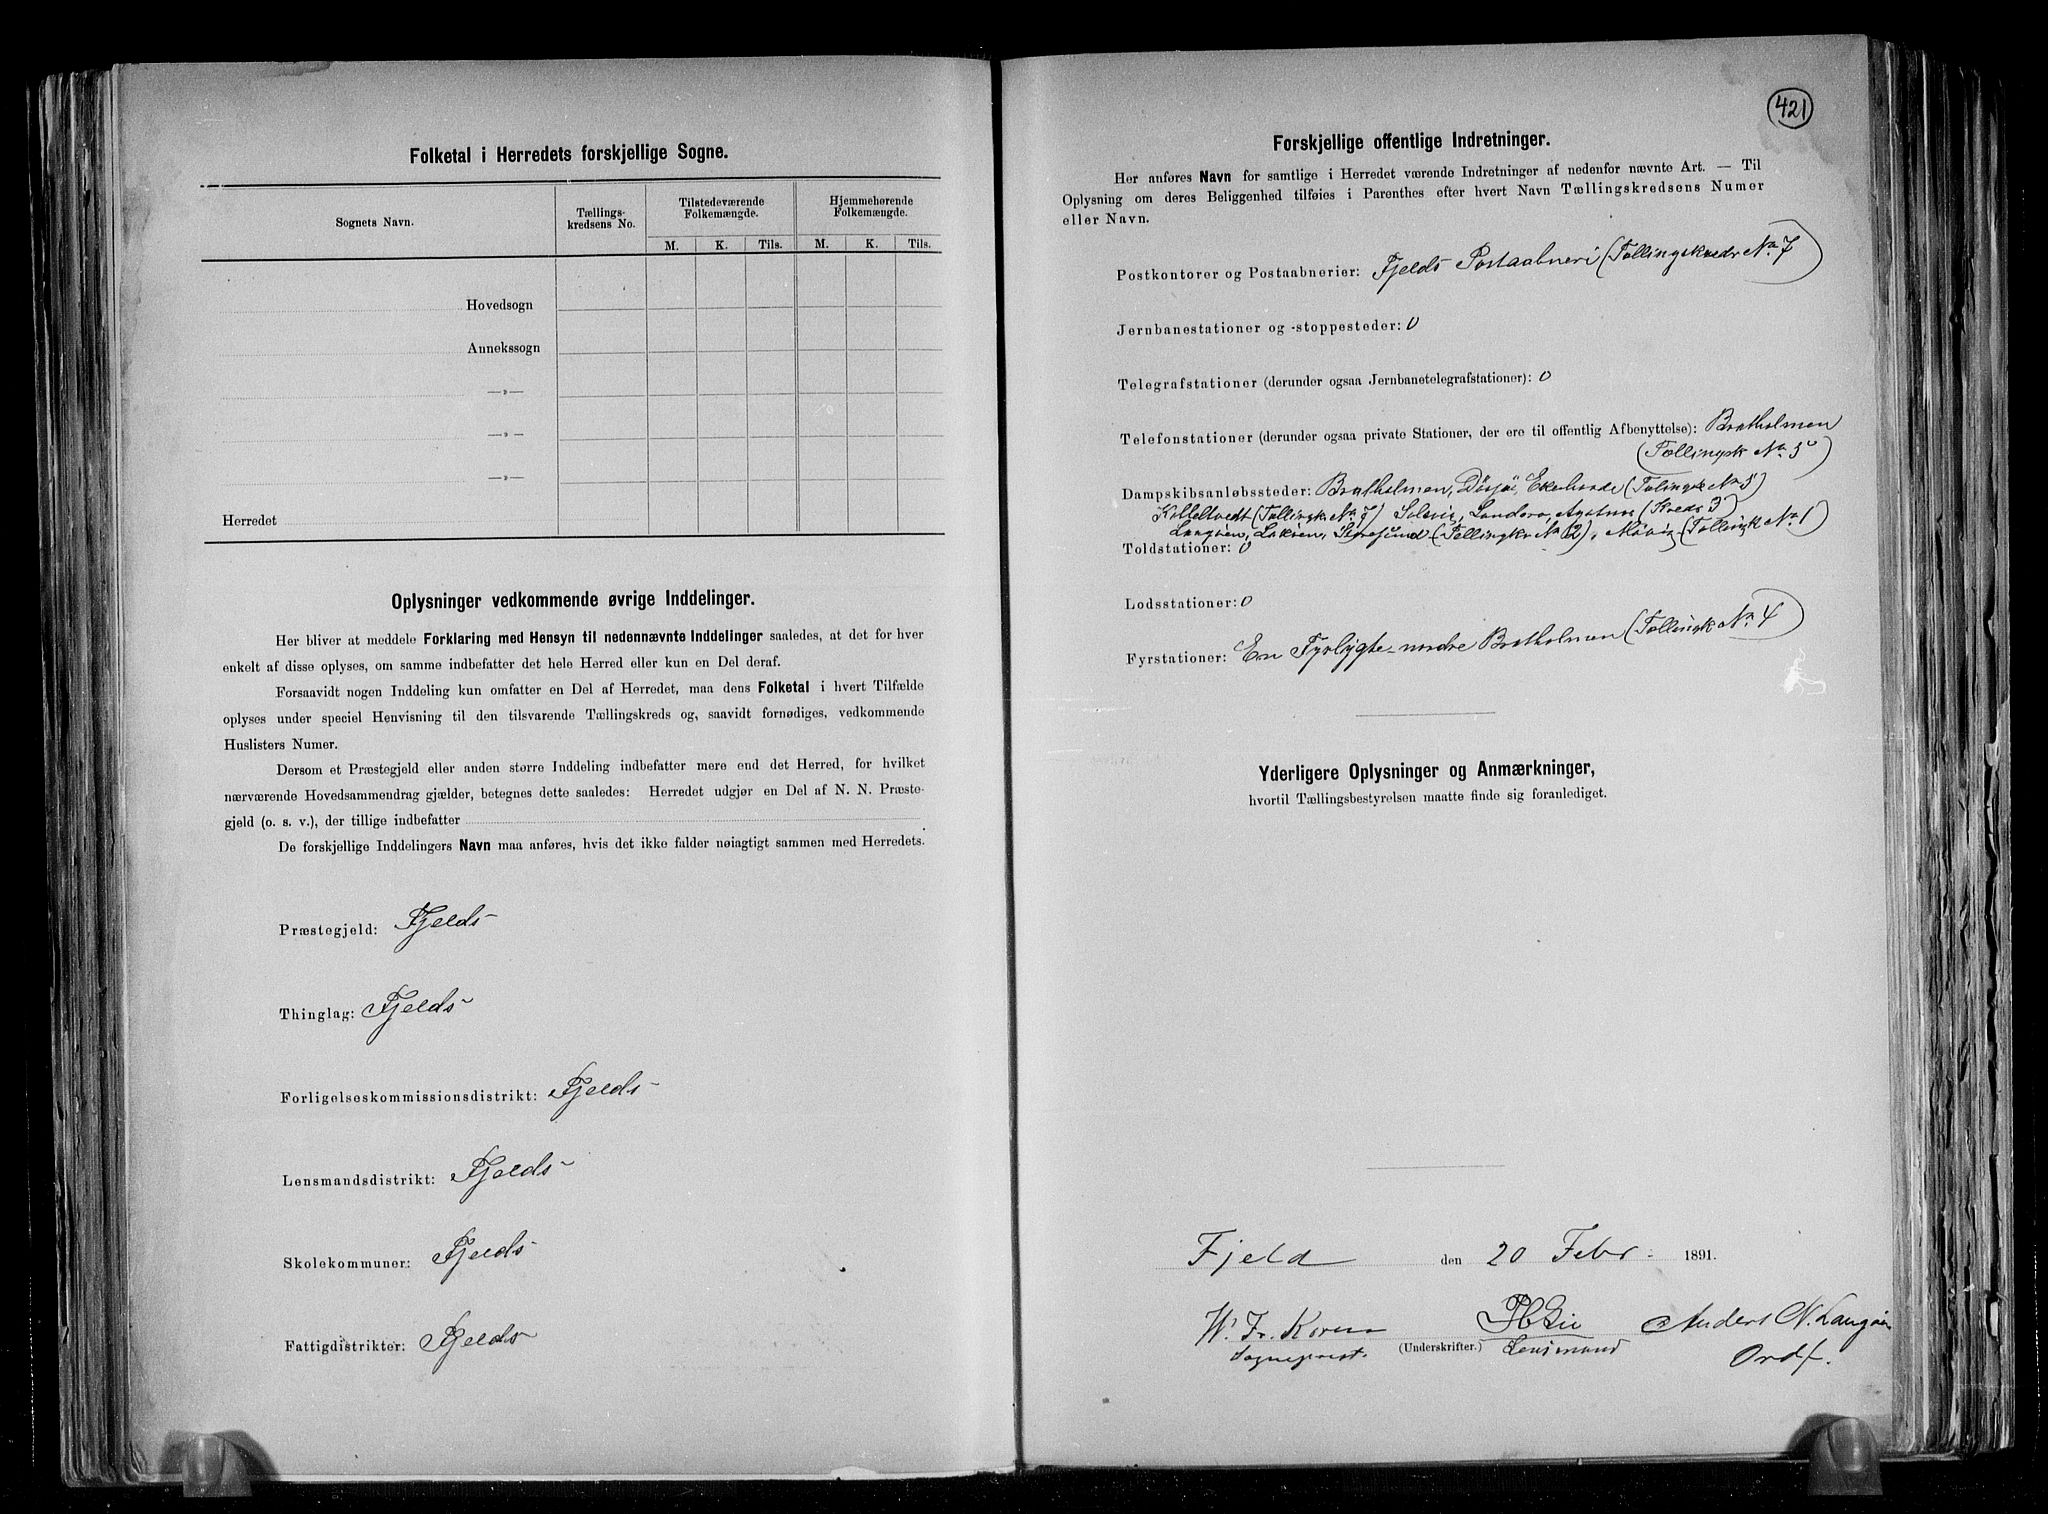 Folketal i Herredets forskjellige Sogne.
Sognets Navn.
Tællings-
kredsens No.
Tilstedeværende
Folkemængde.
Hjemmehørende
Folkemængde.
M. K. Tils. M. K. Tils.
Hovedsogn
Annekssogn
—„—
—„—
—„—
Herredet
Oplysninger vedkommende øvrige Inddelinger.
Her bliver at meddele Forklaring med Hensyn til nedennævnte Inddelinger saaledes, at det for hver
enkelt af disse oplyses, om samme indbefatter det hele Herred eller kun en Del deraf.
Forsaavidt nogen Inddeling kun omfatter en Del af Herredet, maa dens Folketal i hvert Tilfælde
oplyses under speciel Henvisning til den tilsvarende Tællingskreds og, saavidt fornødiges, vedkommende
Huslisters Numer.
Dersom et Præstegjeld eller anden større Inddeling indbefatter mere end det Herred, for hvilket
nærværende Hovedsammendrag gjælder, betegnes dette saaledes: Herredet udgjør en Del af N. N. Præste-
gjeld (o. s. v.), der tillige indbefatter
De forskjellige Inddelingers Navn maa anføres, hvis det ikke falder nøiagtigt sammen med Herredets.
Præstegjeld: Fjelds-
Thinglag: Fjelds-
Forligelseskommissionsdistrikt: Fjelds-
Lensmandsdistrikt: Fjelds-
Skolekommuner: Fjelds-
Fattigdistrikter: Fjelds-
421
Forskjellige offentlige Indretninger.
Her anføres Navn for samtlige i Herredet værende Indretninger af nedenfor nævnte Art. — Til
Oplysning om deres Beliggenhed tilføies i Parenthes efter hvert Navn Tællingskredsens Numer
eller Navn.
Postkontorer og Postaabnerier: Fjelds Postaabneri (Tællingskreds No 7)
Jernbanestationer og -stoppesteder: 0
Telegrafstationer (derunder ogsaa Jernbanetelegrafstationer): 0
Telefonstationer (derunder ogsaa private Stationer, der ere til offentlig Afbenyttelse): Bratholmen
(Tællingsk No 5)
Dampskibsanløbssteder: Bratholmen, Døsjø, Ekerhovde (Tælingsk No 5)
Kolteltvedt (Tællingk. No 7) Solsvig, Landerø, (Kreds 3)
Langøen, Løkøen, (Tællingkr No 2), Møvig (Tællingk No 1)
Toldstationer: 0
Lodsstationer: 0
Fyrstationer: En Fyrlygte-nordre Bratholmen (Tællingk No 4)
Yderligere Oplysninger og Anmærkninger,
hvortil Tællingsbestyrelsen maatte finde sig foranlediget.
Fjeld den 20 Febr 1891.
W. Fr. Koren Anders N. Langøen
Sogneprest. (Underskrifter.) Lensmand Ordf.